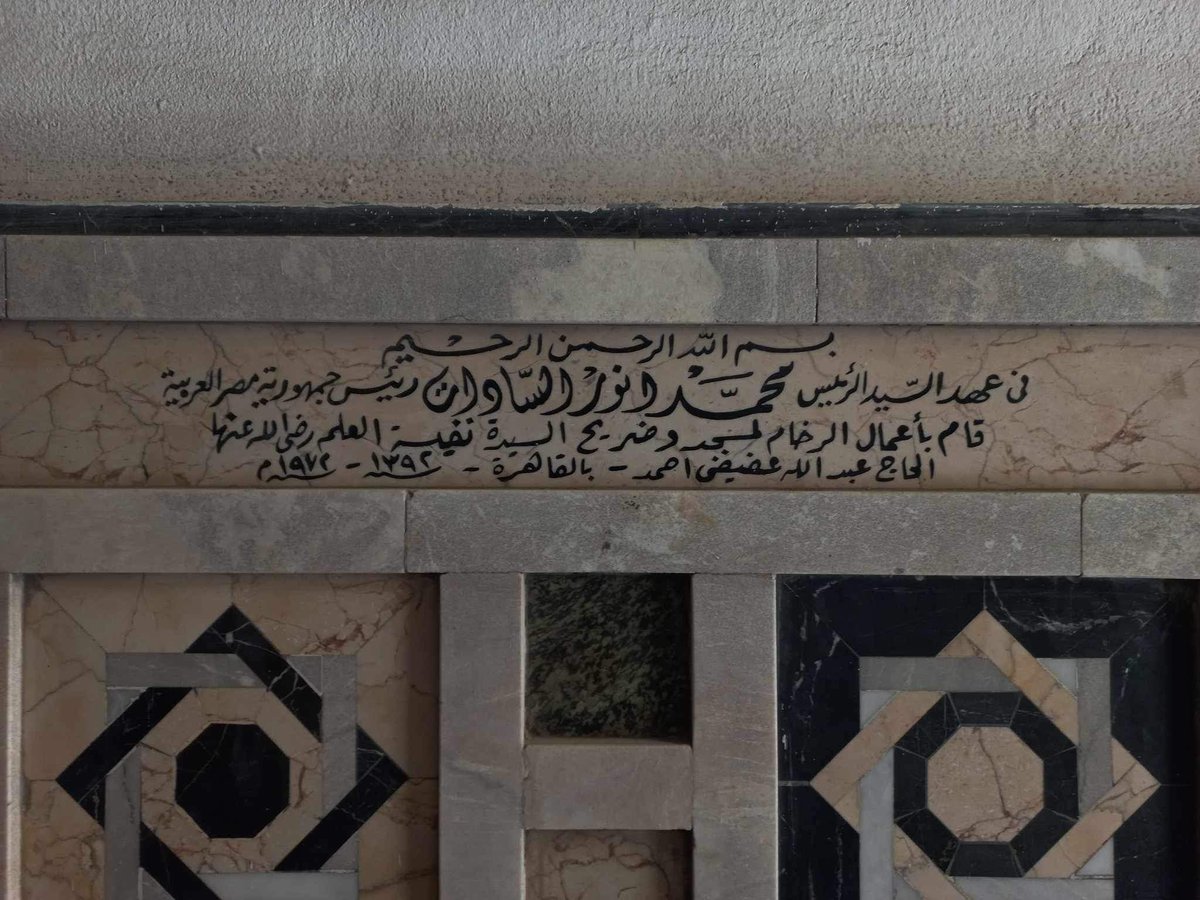 بسم الله الرحمن الرحيم
فى عهد السيد الرئيس محمد انور السادات رئيس جمهورية مصر العربية
قام بأعمال الرخام لمسجد وضريح السيدة نفيسة العلم رضى الله عنها
الحاج عبد الله عفيفى احمد - بالقاهرة - ١٣٩٢ - ١٩٧٢م